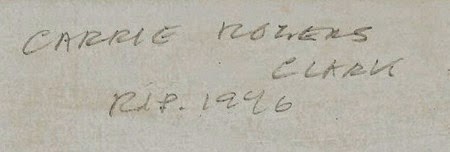 CARRIE ROGERS
CLARK
RIP. 1946